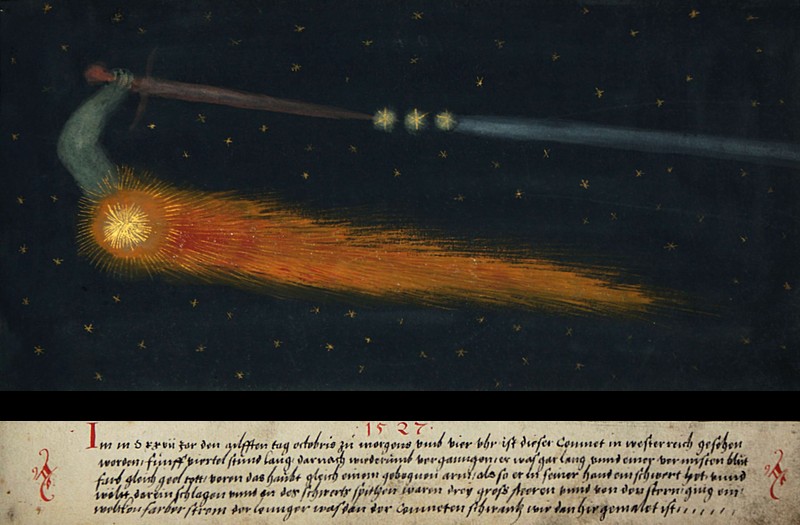 1527.
Im m d xxvii Jar den ailfften tag octobris zu morgens umb vier vhr ist diser Comnet in westerreich gesehen
worden fünff viertel stund lang darnach widerumb vergangen er was gar lang vnnd einer vermisten blůt
farb gleich geel rott voren das haubt gleich einem gebognen arm als so er in seiner hand ein schwert het vnnd
wölt darein schlagen vnnd an der schwerts spitzen waren drey groß steeren vnnd von den sternen gieng ein
wolken farber strom der lenniger was dan der Cometen schwantz wie dan hir gemalet ist